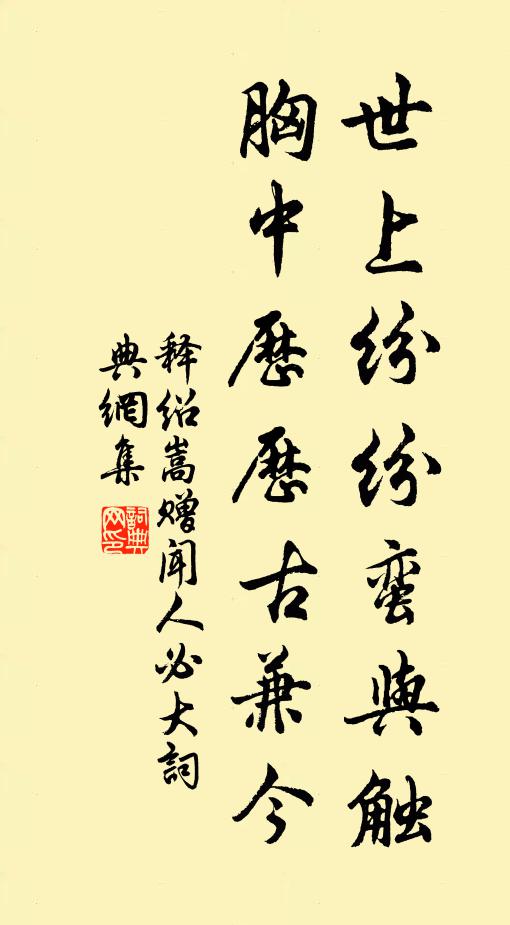 世上纷纷蛮與触
胸中歷歷古兼今
释绍嵩赠闻人必大詞
典網集
詞典网印